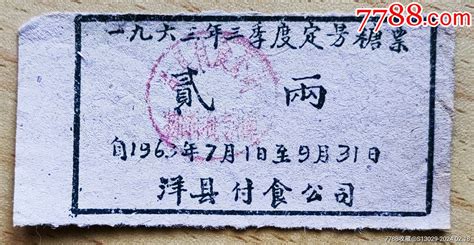 7788.com
一九六三年三季度定另糖票
貳兩
自1963年7月1日至9月31日
洋县付食公司
7788收藏@S13029-2024.02.28